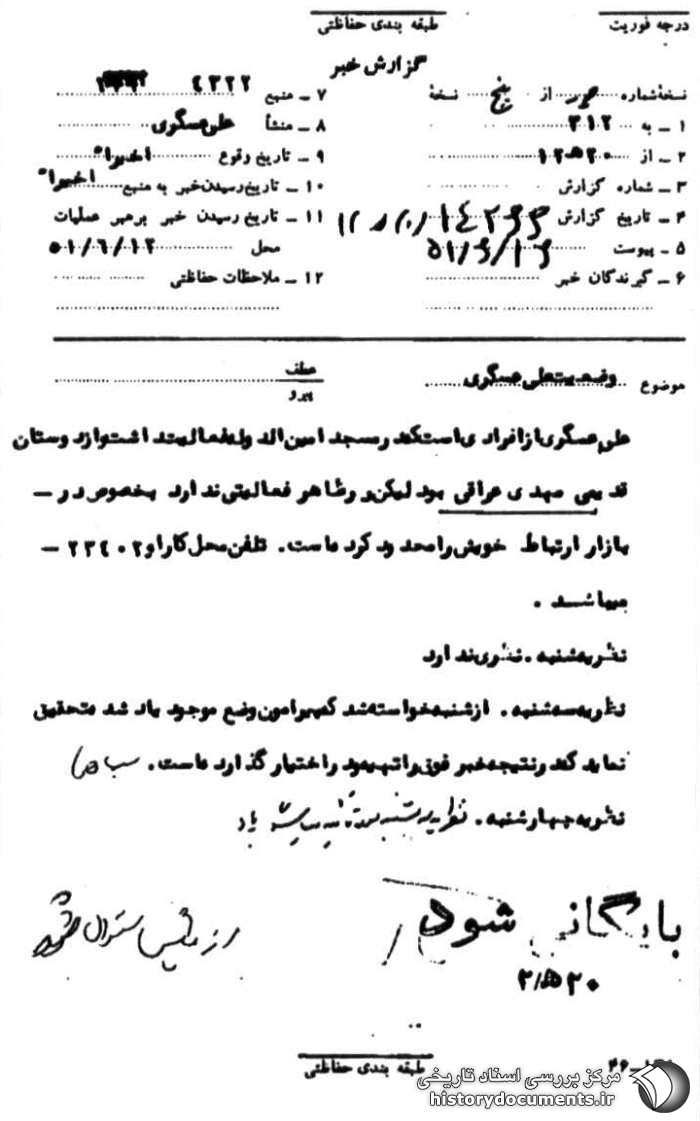 درجه فوریت
طبقه بندی حفاظتی
گزارش خبر
نسخهٔ شماره از پنج نسخهٔ
۱ ــ به ۳۱۲
۲ ــ از ۱۲ ه‍ ۲۰
۳ ــ شماره گزارش
۴ ــ تاریخ گزارش
۵ ــ پیوست ۵۱/۶/۱۶
۶ ــ گیرندگان خبر
۷ ــ منبع ۴۳۲۲
۸ ــ منشأ علی عسگری
۹ ــ تاریخ وقوع اخیراً
۱۰ ــ تاریخ رسیدن خبر به منبع اخیراً
۱۱ ــ تاریخ رسیدن خبر برهبر عملیات
محل ۵۱/۶/۱۲
۱۲ ــ ملاحظات حفاظتی
موضوع وضعیت علی عسگری
عطف
پیرو
علی عسگری از افرادی است که در مسجد امین الدوله فعالیت داشته و از دوستان
قدیمی مهدی عراقی بوده لیکن در ظاهر فعالیتی ندارد بخصوص در ــ
بازار ارتباط خویش را محدود کرده است. تلفن محل کار او ۲۳۴۰۲ ــ
میباشد .
نظریه شنبه . نظری ندارد
نظریه سه شنبه . از شنبه خواسته شد که پیرامون وضع موجود یاد شده تحقیق
نماید که در نتیجه خبر فوق را تهیه و در اختیار گذارده است.
نظریه چهارشنبه . نظریه سه شنبه مورد تائید میباشد
بایگانی شود
۲۰ ه‍ ۲
طبقه بندی حفاظتی
مرکز بررسی اسناد تاریخی
historydocuments.ir